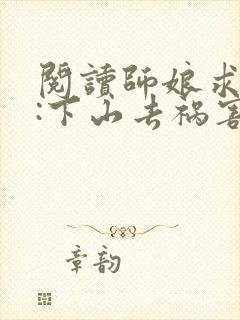 閱讀師娘求
:下山去禍害
章韵